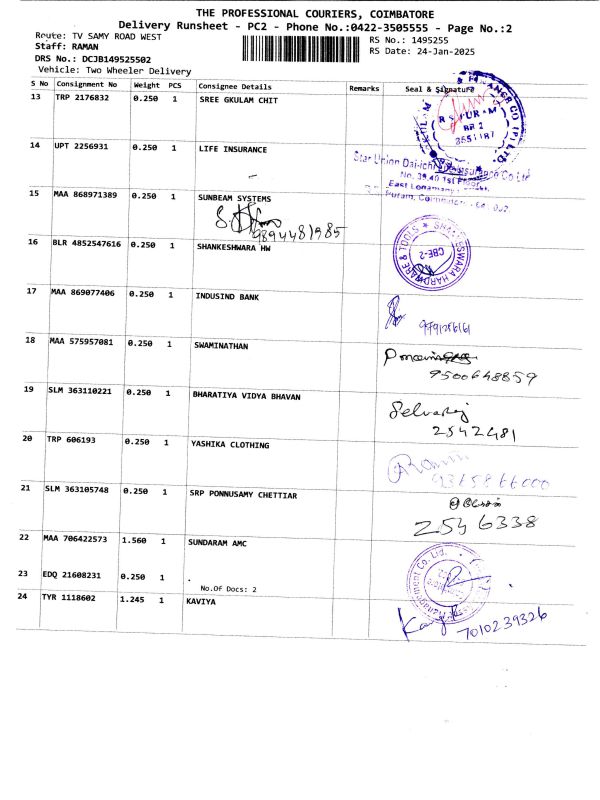 THE PROFESSIONAL COURIERS, COIMBATORE
Delivery Runsheet - PC2 - Phone No.:0422-3505555 - Page No.:2
Route: TV SAMY ROAD WEST
RS No.: 1495255
Staff: RAMAN
RS Date: 24-Jan-2025
DRS No.: DCJB149525502
Vehicle: Two Wheeler Delivery
S No Consignment No Weight PCS Consignee Details Remarks Seal & Signature
13 TRP 2176832 0.250 1 SREE GKULAM CHIT
14 UPT 2256931 0.250 1 LIFE INSURANCE
Star Union Dai-ichi Insurance Co Ltd
No. 39,40 1st Floor,
15 MAA 868971389 0.250 1 SUNBEAM SYSTEMS
9894481985
16 BLR 4852547616 0.250 1 SHANKESHWARA HW
SHANKESHWARA HARDWARE & TOOLS
CBE-2
17 MAA 869077406 0.250 1 INDUSIND BANK
18 MAA 575957081 0.250 1 SWAMINATHAN
9500648859
19 SLM 363110221 0.250 1 BHARATIYA VIDYA BHAVAN
Selvaraj
2542481
20 TRP 606193 0.250 1 YASHIKA CLOTHING
21 SLM 363105748 0.250 1 SRP PONNUSAMY CHETTIAR
2546338
22 MAA 706422573 1.560 1 SUNDARAM AMC
23 EDQ 21608231 0.250 1 .
No.Of Docs: 2
24 TYR 1118602 1.245 1 KAVIYA
7010239326